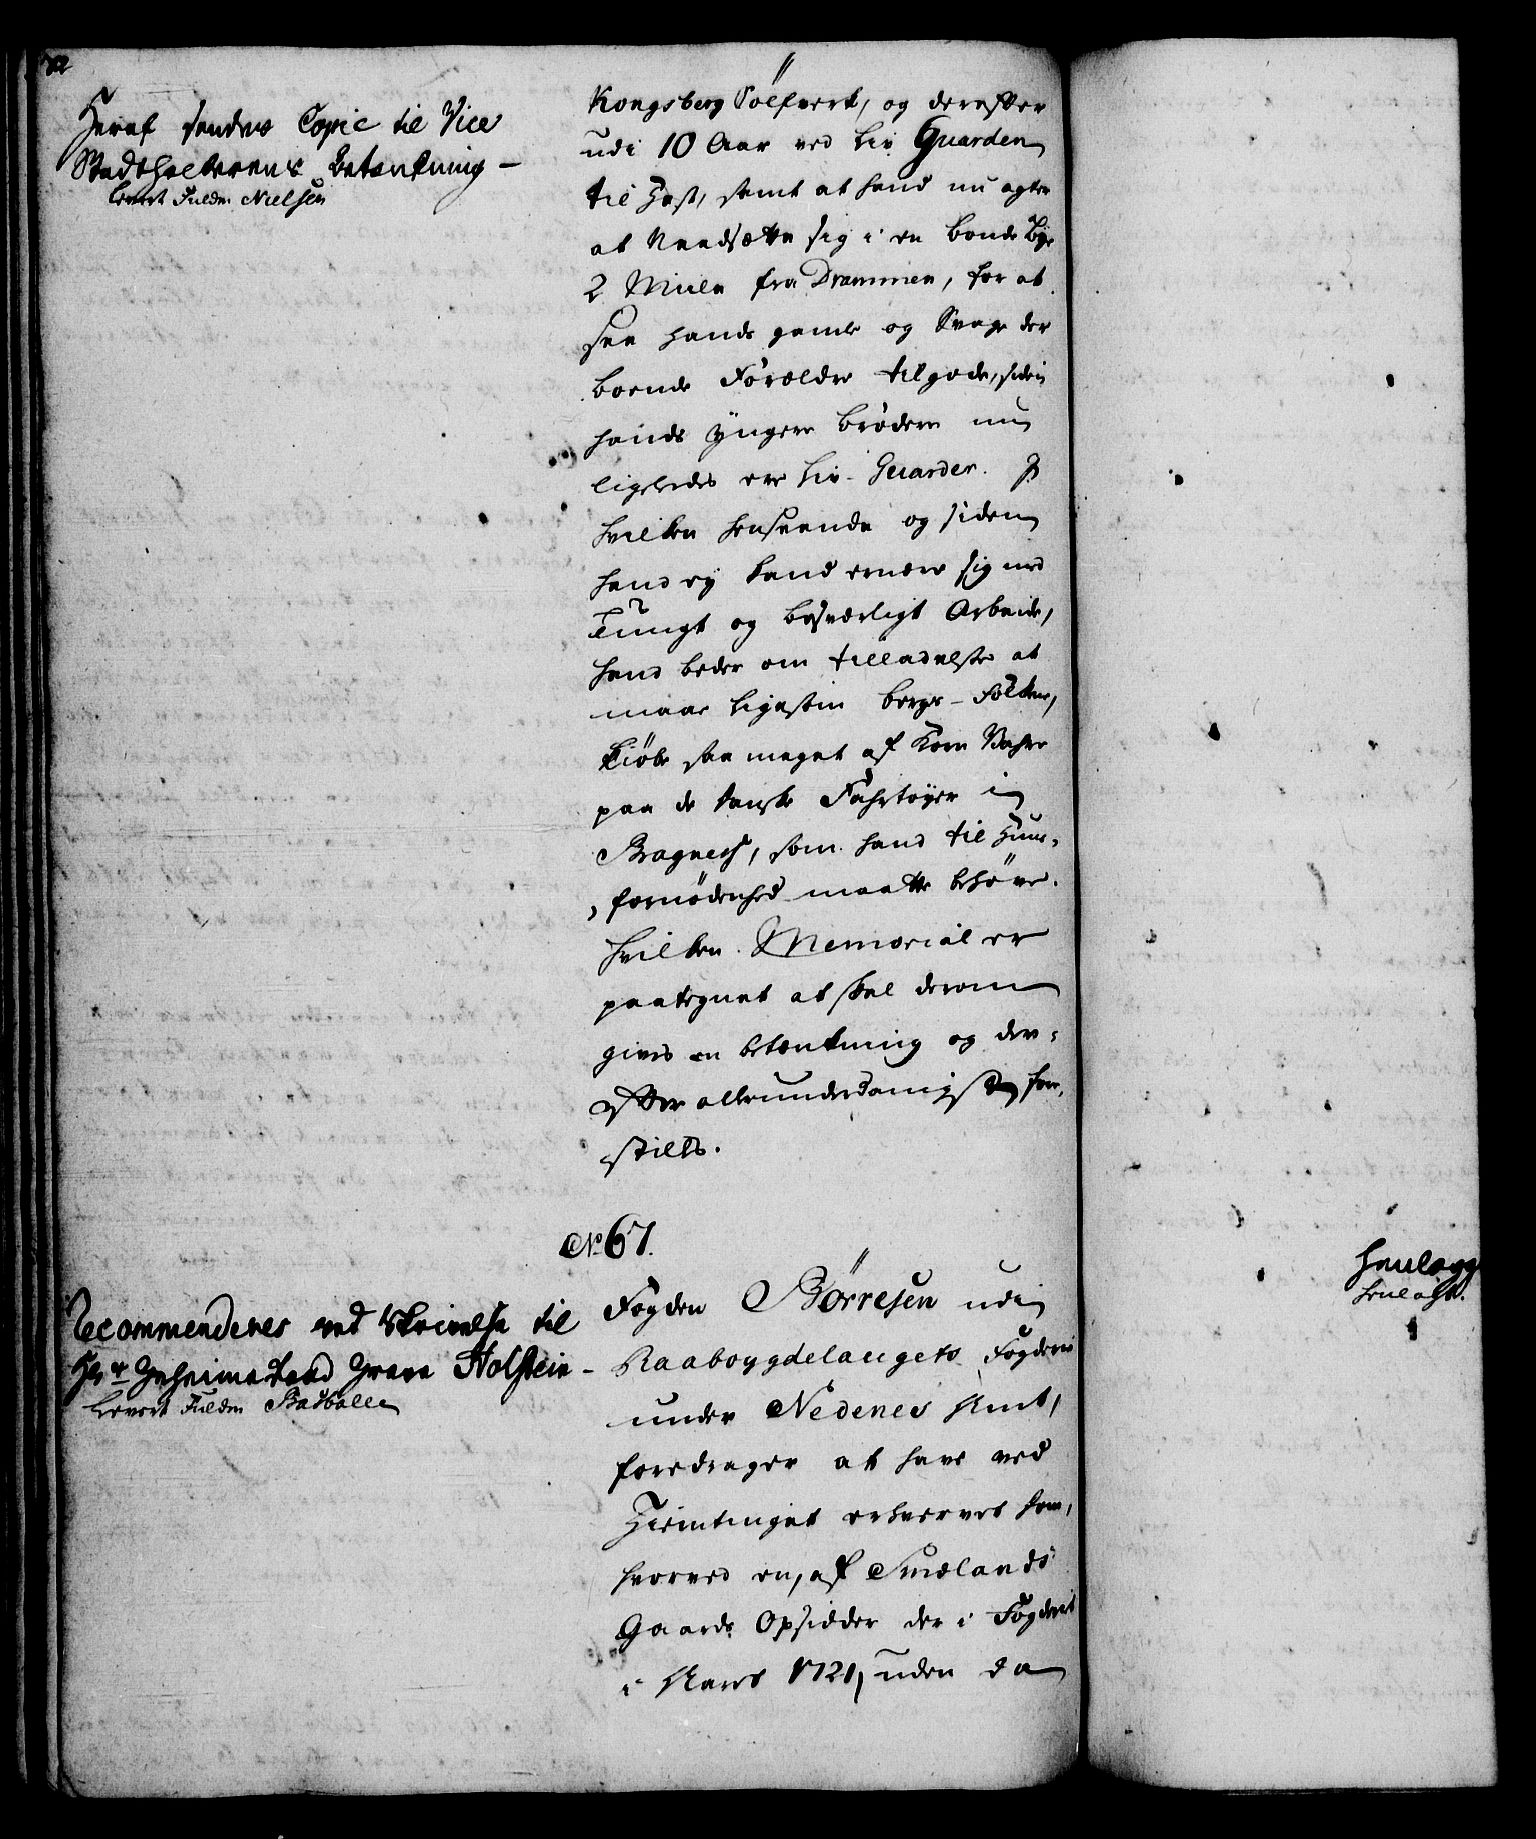 Heraf sendes Copie til Vice
Stadtholderens Betænkning –
levert Fuldm. Nielsen
Kongsberg Sølfverk, og derefter
udi 10 Aar ved Liv Guarden
til Hest, samt at hand nu agter
at Needsætte sig i en Bonde Bye
2 Miile fra Drammen, for at
see hands gamle og Svage der
boende Forældre tilgode, siden
hands yngere Brødere nu
ligeledes ere Liv-Guarder. J
hvilken henseende og siden
hand ey kand ernære sig med
Tungt og besværligt Arbeide,
hand beder om tilladelse at
maae ligesom berg-Folkene,
kiøbe saa meget af Korn Vahre
paa de danske Fahrtøyer i
Bragnes, som hand til Huus-
fornødenhed maatte behøve.
Hvilken Memorial er
paategnet at skal derom
gives en betænkning og der-
efter allerunderdanigst for-
stilles.
No 67.
Recommenderes ved Skrivelse til
Hr. Geheimeraad Greve Holstein –
Levert Fuldm. Badballe
Fogden Børresen udi
Raabøygdelaugets Fogderie
under Nedenes Amt,
foredrager at have ved
Hiemtinget erhvervet Dom,
hvorved en, af Smelands
Gaards Opsidder der i Fogderiet
i Aaret 1721, uden da
Henlægg
henlagt.